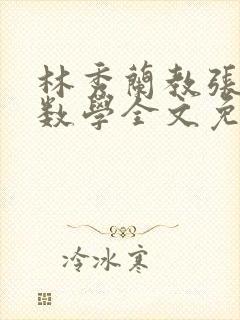 林秀蘭教張
数學全文免
冷冰寒